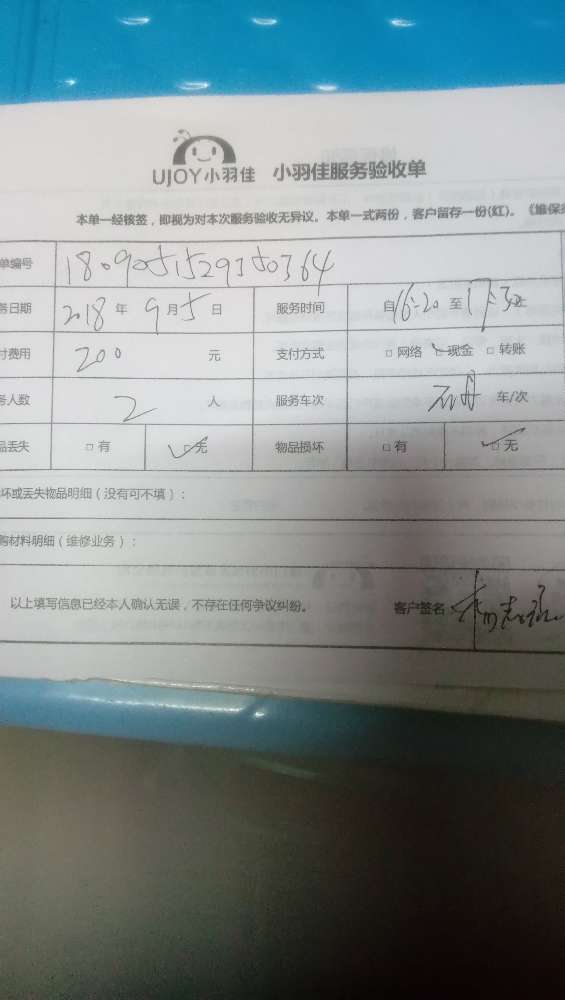 UJOY小羽佳 小羽佳服务验收单
本单一经核签，即视为对本次服务验收无异议。本单一式两份，客户留存一份(红)。《维保
单编号 1809051529350364
务日期 2018 年 9 月 5 日 服务时间 自 16:20 至 17:30
付费用 200 元 支付方式 □ 网络 □ 现金 □ 转账
务人数 2 人 服务车次 车/次
品丢失 □ 有 □ 无 物品损坏 □ 有 □ 无
坏或丢失物品明细（没有可不填）：
购材料明细（维修业务）：
以上填写信息已经本人确认无误，不存在任何争议纠纷。 客户签名：